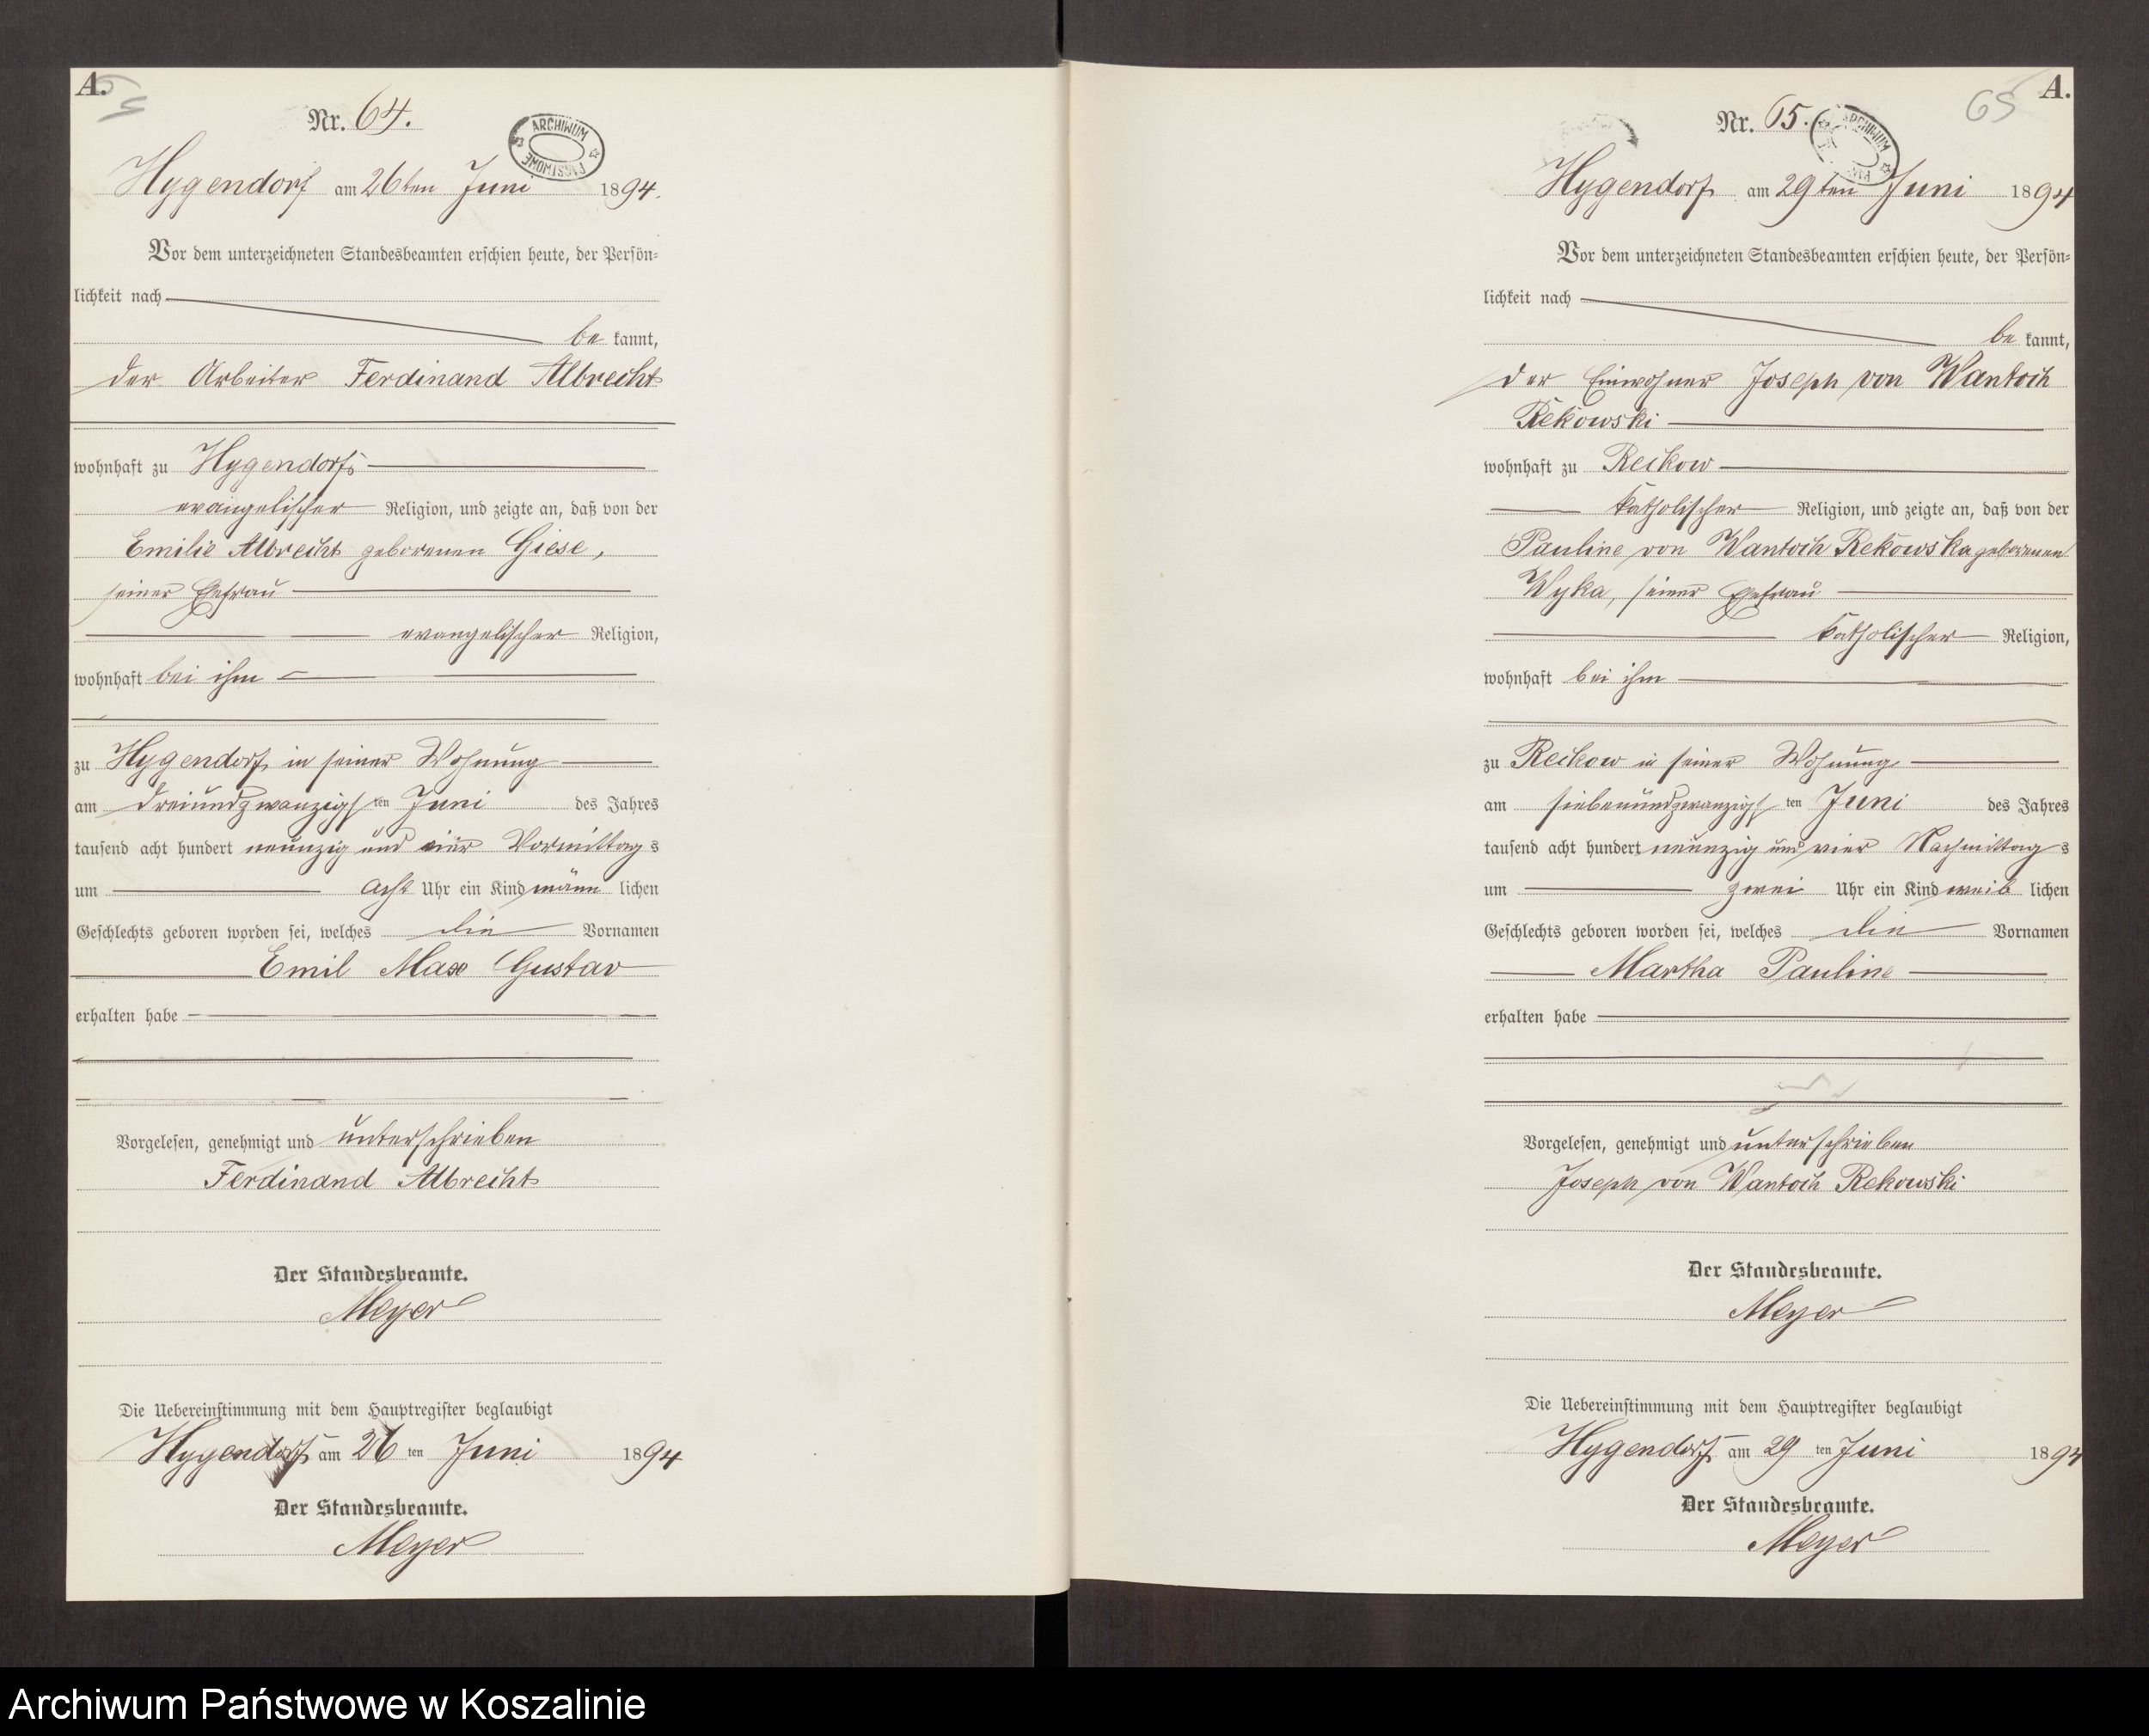 A.
Nr. 64.
ARCHIWUM PAŃSTWOWE
Hygendorf am 26ten Juni 1894.
Vor dem unterzeichneten Standesbeamten erschien heute, der Persön-
lichkeit nach
be kannt,
der Arbeiter Ferdinand Albrecht
wohnhaft zu Hygendorf
evangelischer Religion, und zeigte an, daß von der
Emilie Albrecht geborenen Giese,
seiner Ehefrau
evangelischer Religion,
wohnhaft bei ihm
zu Hygendorf, in seiner Wohnung
am dreiundzwanzigsten Juni des Jahres
tausend acht hundert neunzig und vier Vormittags
um acht Uhr ein Kind männlichen
Geschlechts geboren worden sei, welches die Vornamen
Emil Max Gustav
erhalten habe
Vorgelesen, genehmigt und unterschrieben
Ferdinand Albrecht
Der Standesbeamte.
Meyer
Die Uebereinstimmung mit dem Hauptregister beglaubigt
Hygendorf am 26 ten Juni 1894
Der Standesbeamte.
Meyer
65
A.
Nr. 65.
ARCHIWUM
Hygendorf am 29ten Juni 1894
Vor dem unterzeichneten Standesbeamten erschien heute, der Persön-
lichkeit nach
be kannt,
der Einwohner Joseph von Wantoch
Rekowski
wohnhaft zu Reckow
katholischer Religion, und zeigte an, daß von der
Pauline von Wantoch Rekowska geborenen
Wyka, seiner Ehefrau
katholischer Religion,
wohnhaft bei ihm
zu Reckow in seiner Wohnung
am siebenundzwanzigsten Juni des Jahres
tausend acht hundert neunzig und vier Nachmittags
um zwei Uhr ein Kind weiblichen
Geschlechts geboren worden sei, welches die Vornamen
Martha Pauline
erhalten habe
Vorgelesen, genehmigt und unterschrieben
Joseph von Wantoch Rekowski
Der Standesbeamte.
Meyer
Die Uebereinstimmung mit dem Hauptregister beglaubigt
Hygendorf am 29 ten Juni 1894
Der Standesbeamte.
Meyer
Archiwum Państwowe w Koszalinie